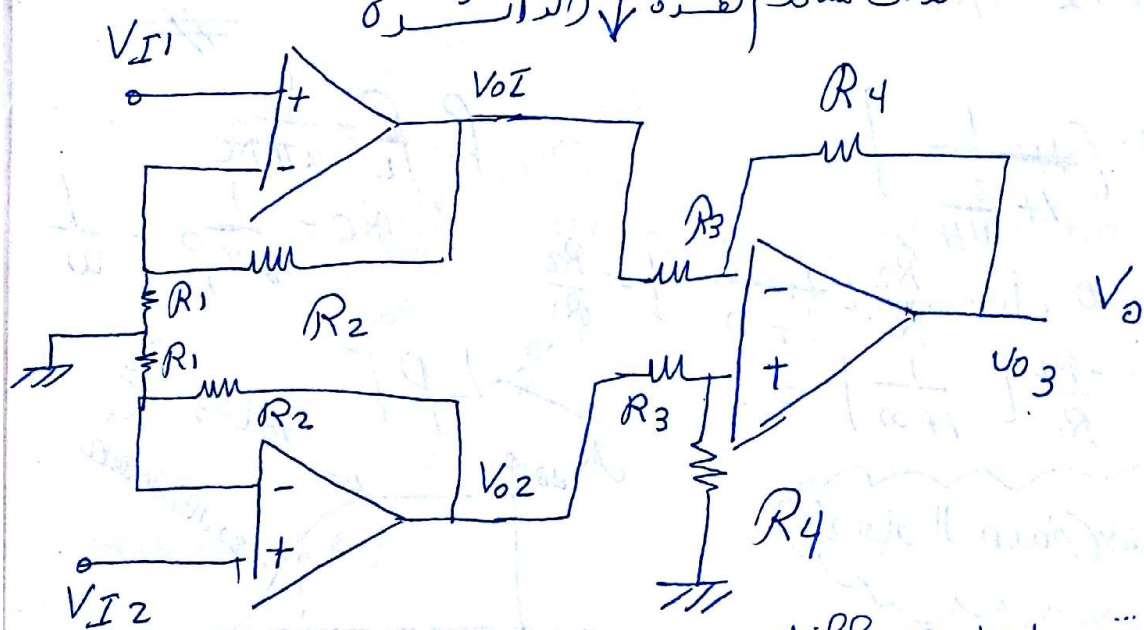 VI1
+
VoI
R4
-
R3
R1
R2
-
Vo
R1
+
vo3
R2
R3
-
Vo2
R4
+
VI2